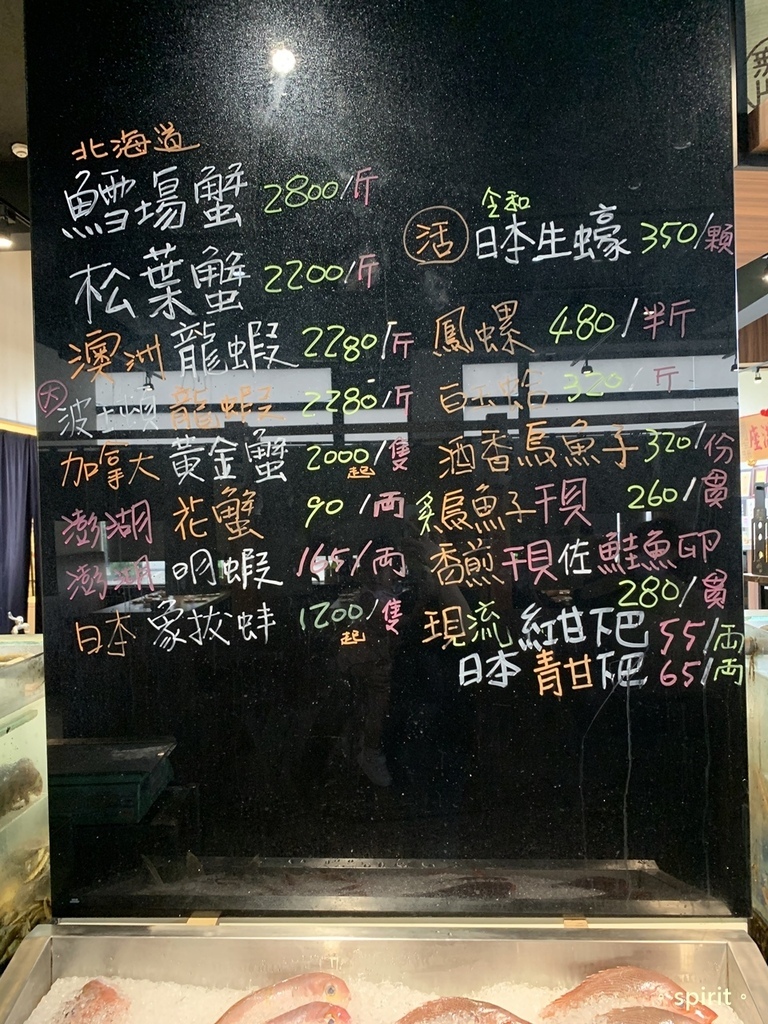 北海道
鱈場蟹 2800/斤
松葉蟹 2200/斤
澳洲龍蝦 2280/斤
大 波士頓龍蝦 2280/斤
加拿大黃金蟹 2000/隻
起
澎湖花蟹 90/両
澎湖明蝦 165/両
日本象拔蚌 1200/隻
起
令和
活 日本生蠔 350/顆
鳳螺 480/半斤
白玉蛤 320/斤
酒香烏魚子 320/份
烏魚子干貝 260/貫
香煎干貝佐鮭魚卵
280/貫
現流紅甘下巴 55/両
日本青甘下巴 65/両
spirit。